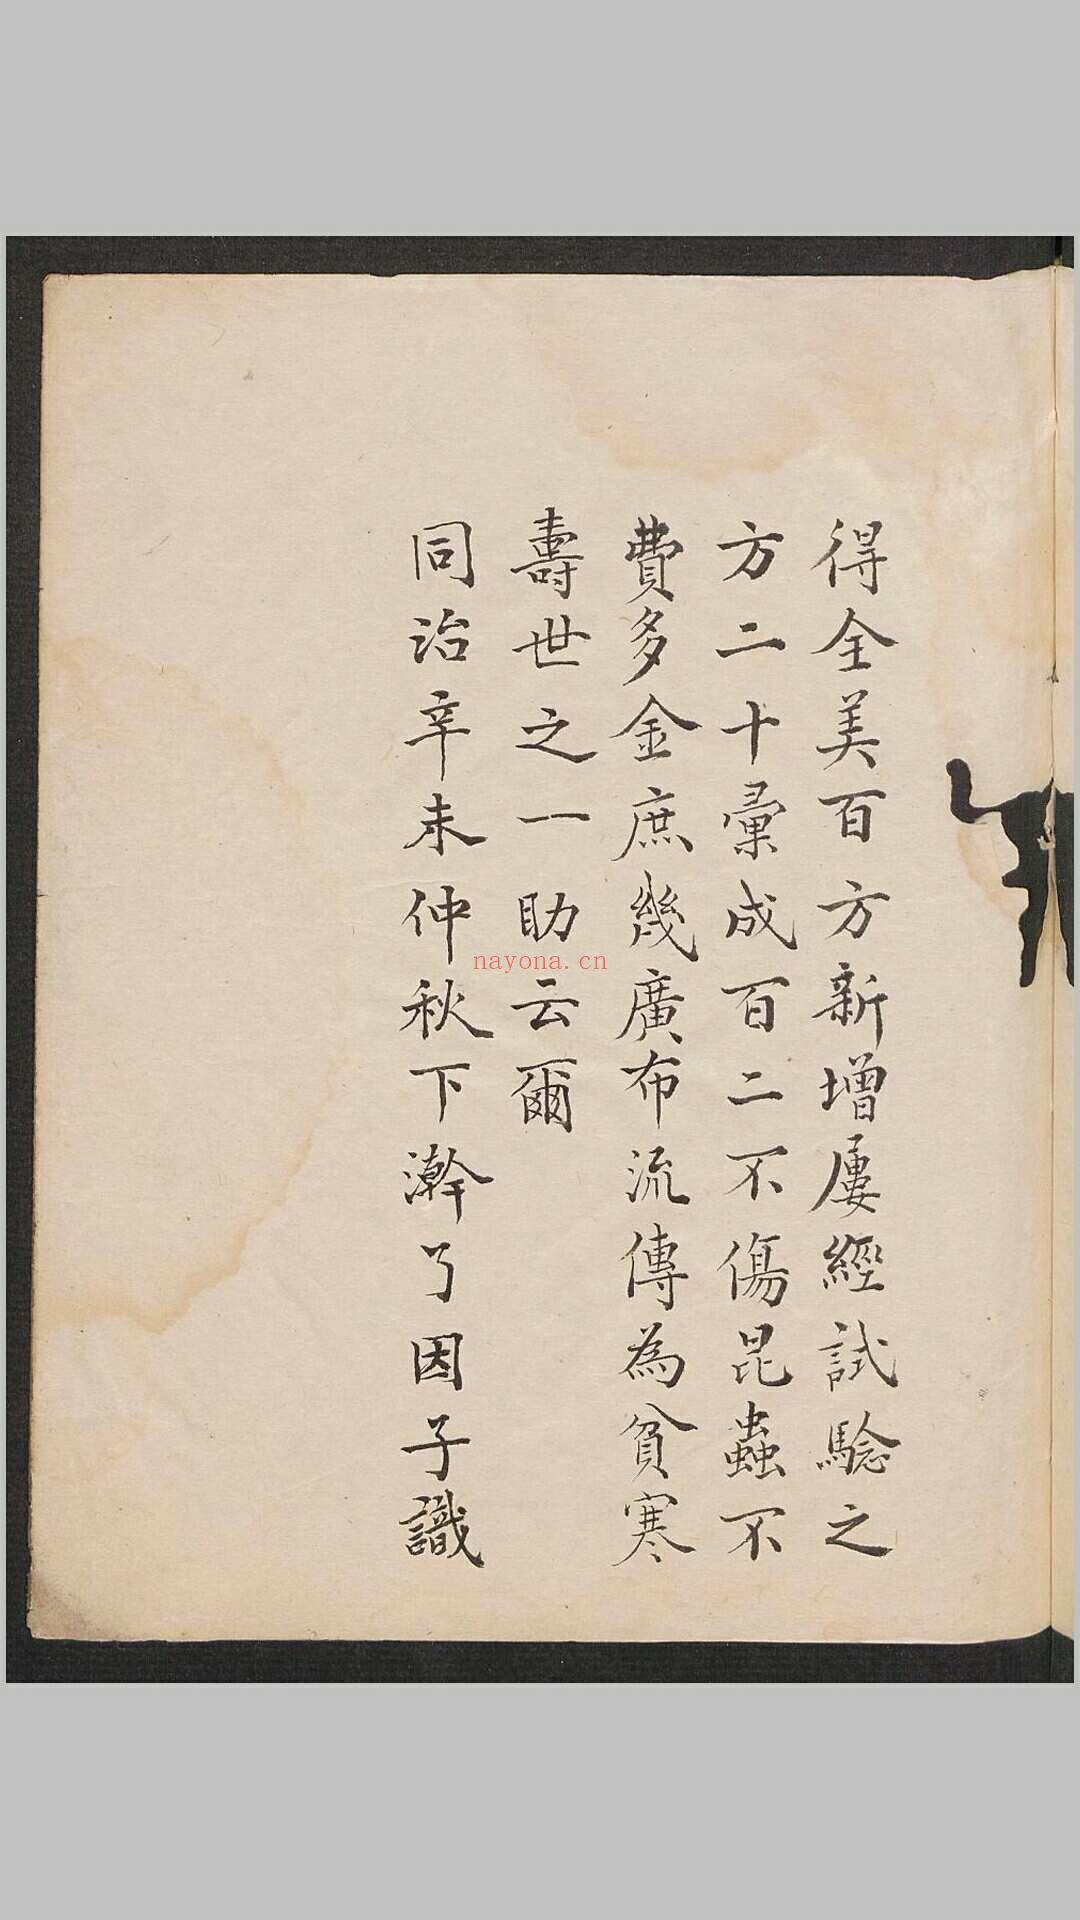 得全美百方新增屢經試騐之
方二十彙成百二不傷昆蟲不
費多金庶幾廣布流傳為貧寒
壽世之一助云爾
同治辛未仲秋下澣了因子識
nayona.cn